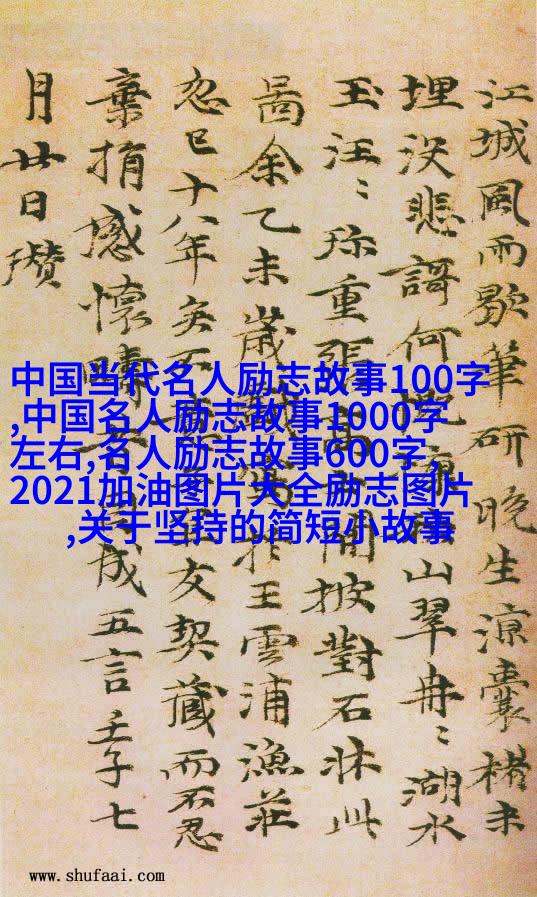 江城風雨歇筆研晚生涼囊楮未
埋没悲謌何山翠冉〻湖水
玉汪〻珎重張閒披對石牀此
啚余乙未歲戲王雲浦漁莊
忽已十八年矣不友契藏而不忍
棄捐感懷疇成五言壬子七
月廿日瓚
中国当代名人励志故事100字
,中国名人励志故事1000字
左右,名人励志故事600字,
2021加油图片大全励志图片
,关于坚持的简短小故事
www.shufaai.com